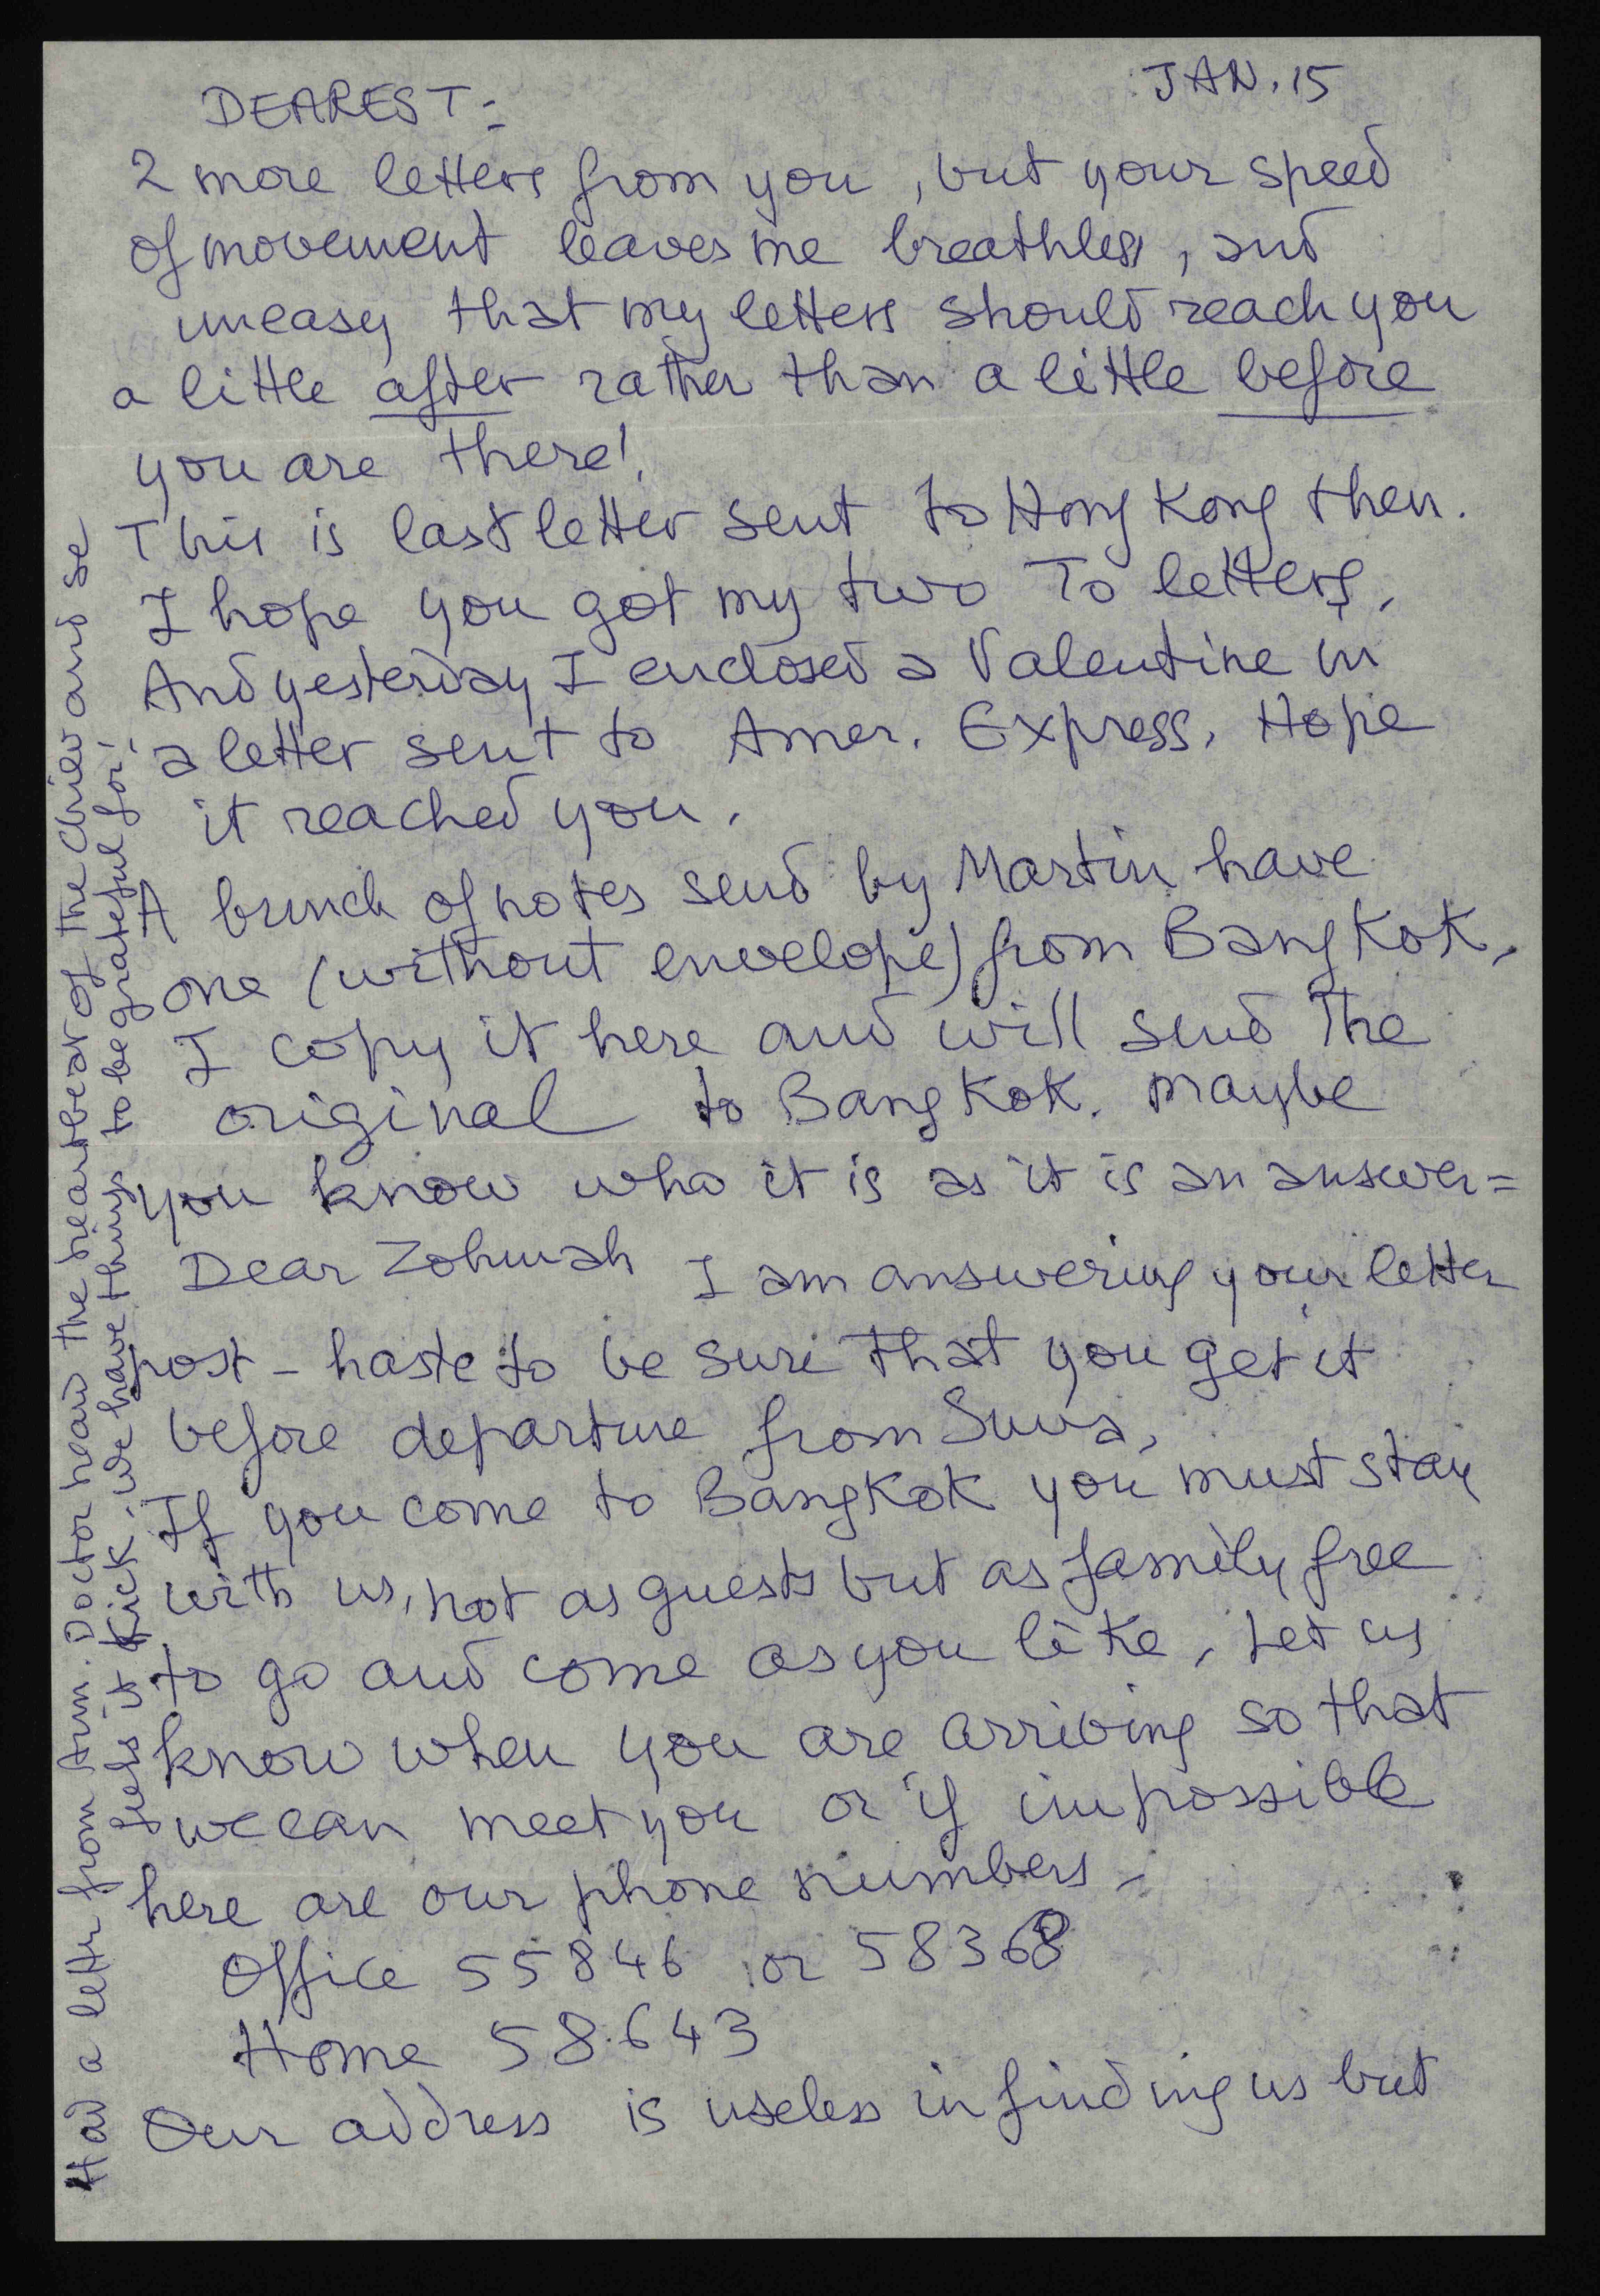 JAN. 15
DEAREST =
2 more letters from you, but your speed
of movement leaves me breathless, and
uneasy that my letters should reach you
a little after rather than a little before
you are there!
This is last letter sent to Hong Kong then.
I hope you got my two To letters.
And yesterday I enclosed a Valentine in
a letter sent to Amer. Express. Hope
it reached you.
A bunch of notes send by Martin have
one (without envelope) from Bangkok.
I copy it here and will send the
original to Bangkok. Maybe
you know who it is as it is an answer =
Dear Zohmah I am answering your letter
post - haste to be sure that you get it
before departure from Suva.
If you come to Bangkok you must stay
with us, not as guests but as family free
to go and come as you like. Let us
know when you are arriving so that
we can meet you or if impossible
here are our phone numbers -
Office 55846 or 58368
Home 58.643
Our address is useless in finding us but
Had a letter from Ann. Doctor heard the heartbeat of the child and se
feels it kick. We have things to be grateful for!